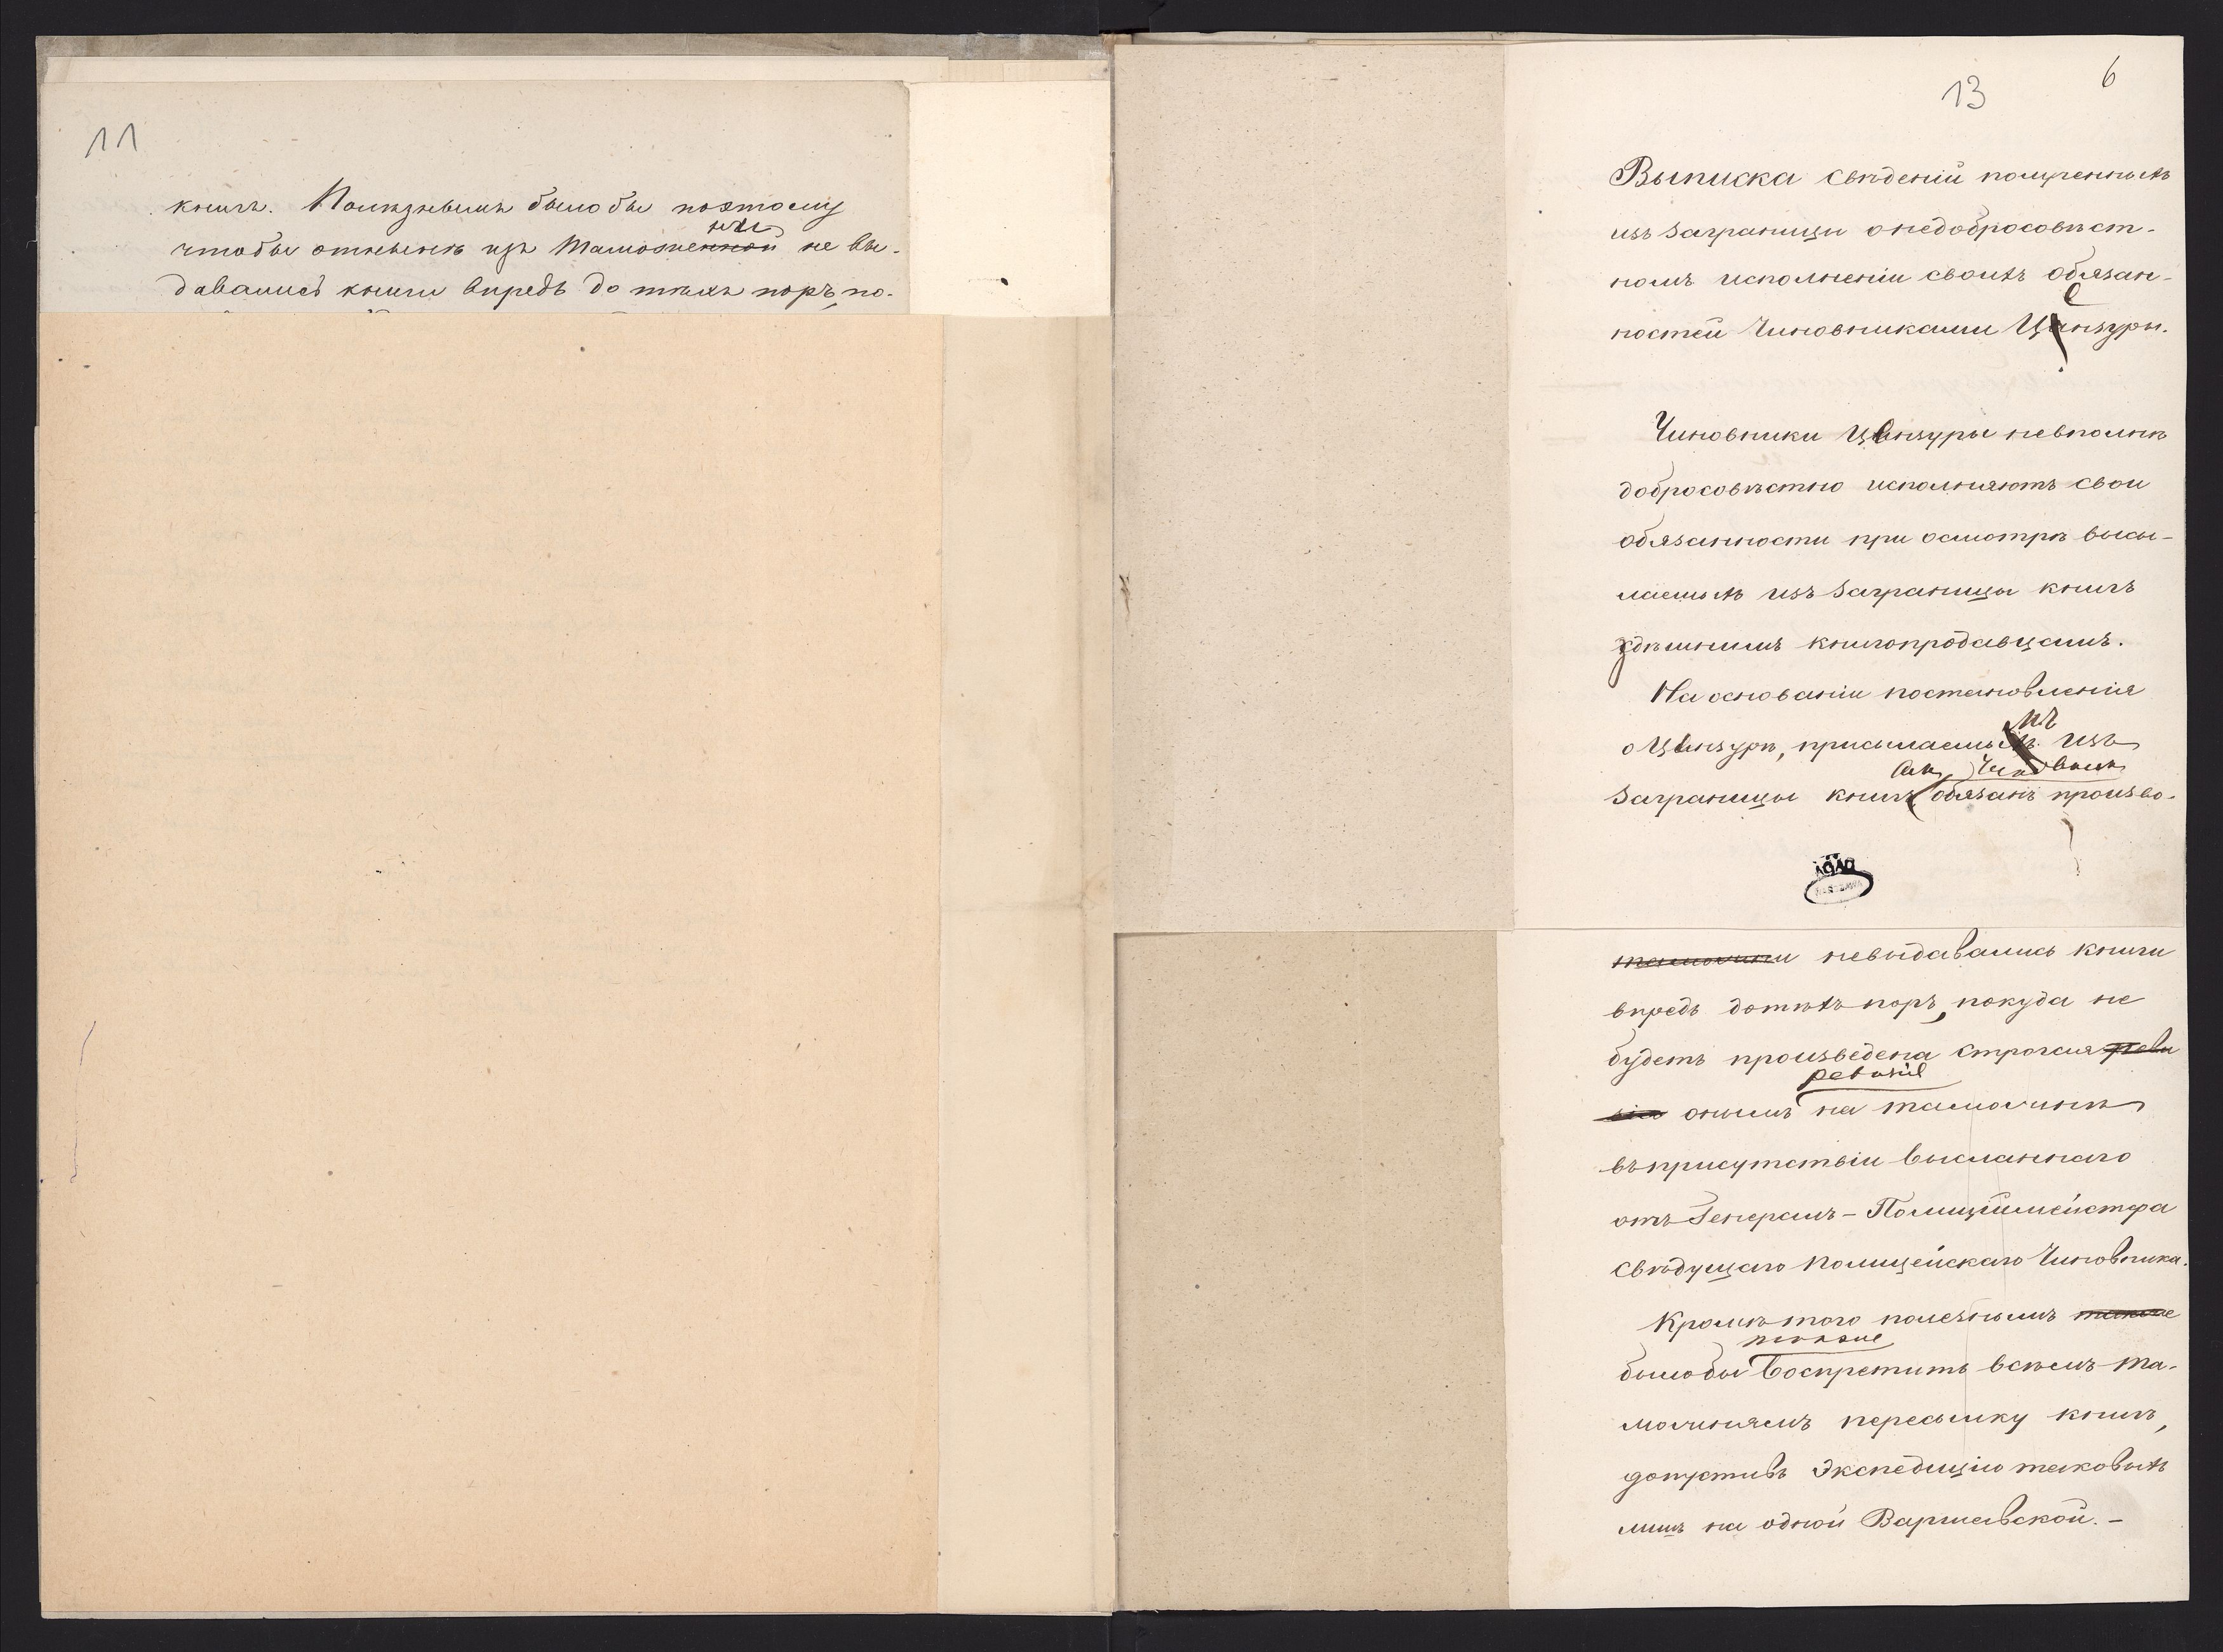 11
книгъ. Полезнымъ было бы поэтому
ни
чтобы отнынѣ изъ Таможенной не вы-
давались книги впредь до тѣхъ поръ, по-
6
13
Выписка свѣдѣній полученныхъ
изъ заграницы о недобросовѣст-
номъ исполненіи своихъ обязан-
ностей Чиновниками Цензуры.
Чиновники Цензуры невполнѣ
добросовѣстно исполняютъ свои
обязанности при осмотрѣ высы-
лаемыхъ изъ заграницы книгъ
здѣшнимъ книгопродавцамъ.
На основаніи постановленія
о Цензурѣ, присылаемыхъ изъ
Чиновникъ
заграницы книгъ обязанъ произво-
AGAD
WARSZAWA
таможни невыдавались книги
впредь до тѣхъ поръ, покуда не
будетъ произведена строгая реви
ревизія
зія онымъ на таможнѣ
въ присутствіи высланнаго
отъ Генералъ-Полиціймейстера
свѣдущаго полицейскаго Чиновника.
Кромѣ того полезнымъ также
было бы воспретить всѣмъ та-
можнямъ пересылку книгъ,
допустивъ Экспедицію таковыхъ
лишь на одной Варшавской.-